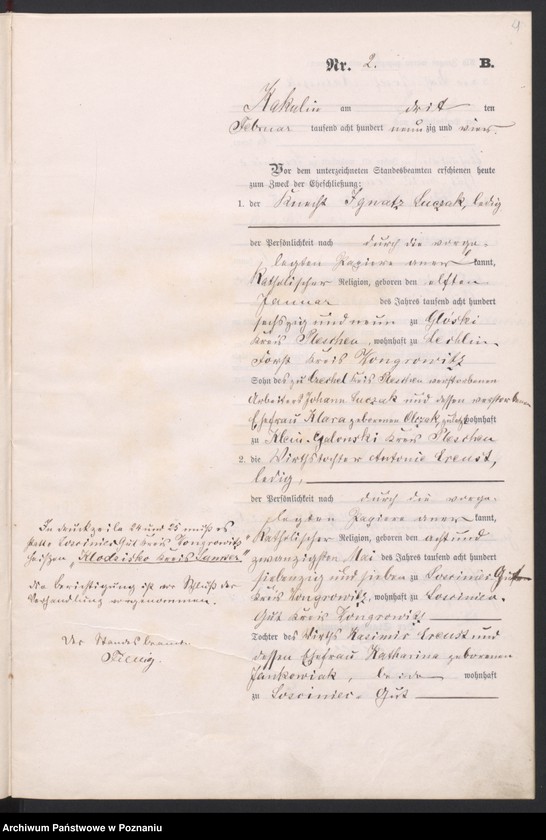 4
Nr. 2. B.
Kakulin am drit ten
Februar tausend acht hundert neun zig und vier.
Vor dem unterzeichneten Standesbeamten erschienen heute
zum Zweck der Eheschließung:
1. der Knecht Ignatz Luczak, ledig
der Persönlichkeit nach durch die vorge-
legten Papiere aner kannt,
Katholischer Religion, geboren den elften
Januar des Jahres tausend acht hundert
sechszig und neun zu
Kreis Pleschen, wohnhaft zu Lechlin
Forst Kreis Wongrowitz
Sohn des zu Kreis Pleschen verstorbenen
Arbeiters Johann Luczak und dessen verstorbenen
Ehefrau Klara geborenen zuletzt wohnhaft
zu Klein Kreis Pleschen
2. die Wirthstochter Antonie
ledig,
der Persönlichkeit nach durch die vorge-
legten Papiere aner kannt,
Katholischer Religion, geboren den acht und
zwanzigsten Mai des Jahres tausend acht hundert
siebenzig und sieben zu Losciniec Gut
Kreis Wongrowitz, wohnhaft zu Losciniec-
Gut Kreis Wongrowitz
Tochter des Wirths Kasimir und
dessen Ehefrau Katharina geborenen
Jankowiak, beide wohnhaft
zu Losciniec-Gut
In Druckzeile 24 und 25 muß es
statt Losciniec Gut Kreis Wongrowitz
heißen, "Klodzisko Kreis Samter"
die Berichtigung ist vor Schluß der
Verhandlung vorgenommen.
Der Standesbeamte.
Archiwum Państwowe w Poznaniu